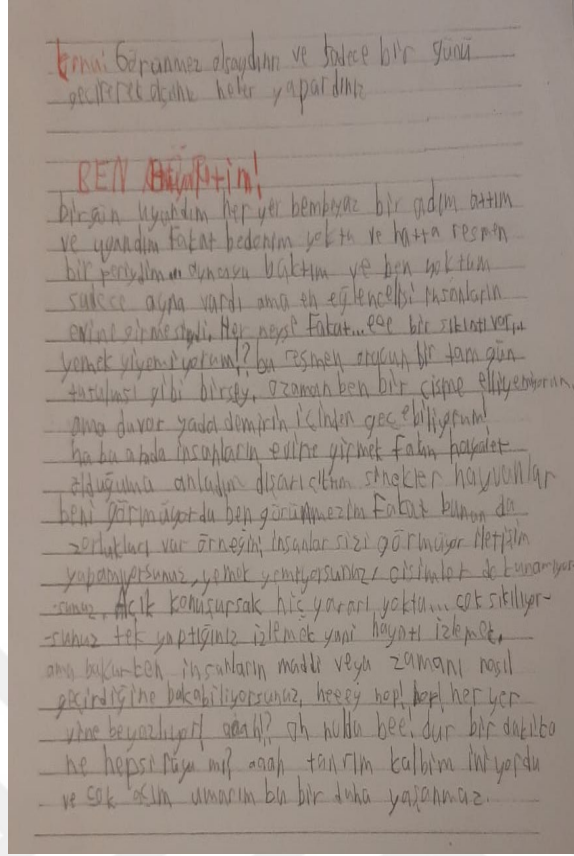 konu: Görünmez olsaydınız ve sadece bir günü
geçirerek olsanız neler yapardınız
BEN
birgün uyandım her yer bembeyaz bir adım attım
ve uyandım fakat bedenim yoktu ve hatta resmen
bir aynaya baktım ve ben yoktum
sadece ayna vardı ama en eğlencelisi insanların
evine girmesiydi. Her neyse Fakat... ee bir sıkıntı var,
yemek yiyemiyorum!? bu resmen orucun bir tam gün
tutulması gibi birşey, ozaman ben bir cisme elliyemiyorum,
ama duvar yada demirin içinden geçebiliyorum!
ha bu anda insanların evine girmek falan hayalet
olduğumu anladım dışarı çıktım sinekler hayvanlar
beni görmüyordu ben görünmezim Fakat bunun da
zorlukları var örneğin; insanlar sizi görmüyor iletişim
yapamıyorsunuz, yemek yemiyorsunuz, cisimlere dokunamıyor-
-sunuz. Açık konuşursak hiç yararı yoktu... çok sıkılıyor-
-sunuz tek yaptığınız izlemek yani hayatı izlemek,
ama bakarken insanların maddi veya zamanı nasıl
geçirdiğine bakabiliyorsunuz, heeey hop! hop! her yer
yine beyazlıyor! aaah!? oh nuldu bee! dur bir dakika
ne hepsi rüya mı? aaah tanrım kalbim iniyordu
ve çok umarım bu bir daha yaşanmaz.